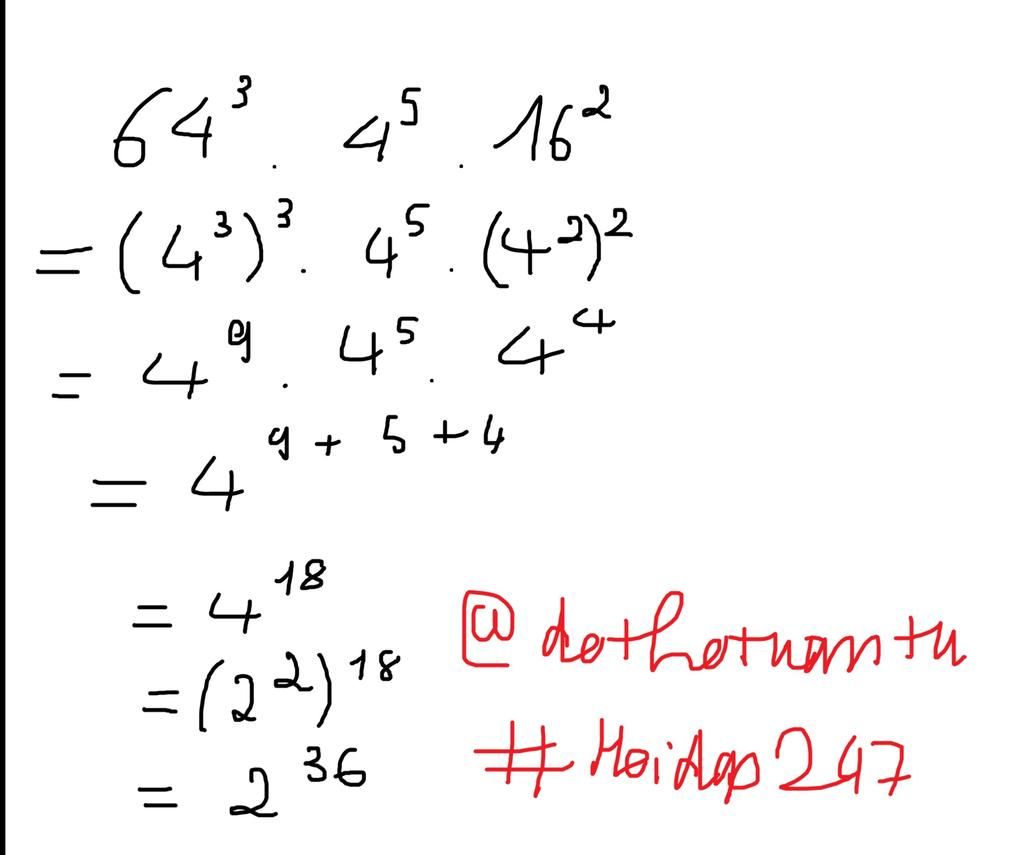 64³ . 4⁵ . 16²
= (4³)³ . 4⁵ . (4²)²
= 4⁹ . 4⁵ . 4⁴
= 4⁹⁺⁵⁺⁴
= 4¹⁸
= (2²)¹⁸
= 2³⁶
@dothotuantu
#HoiDap247